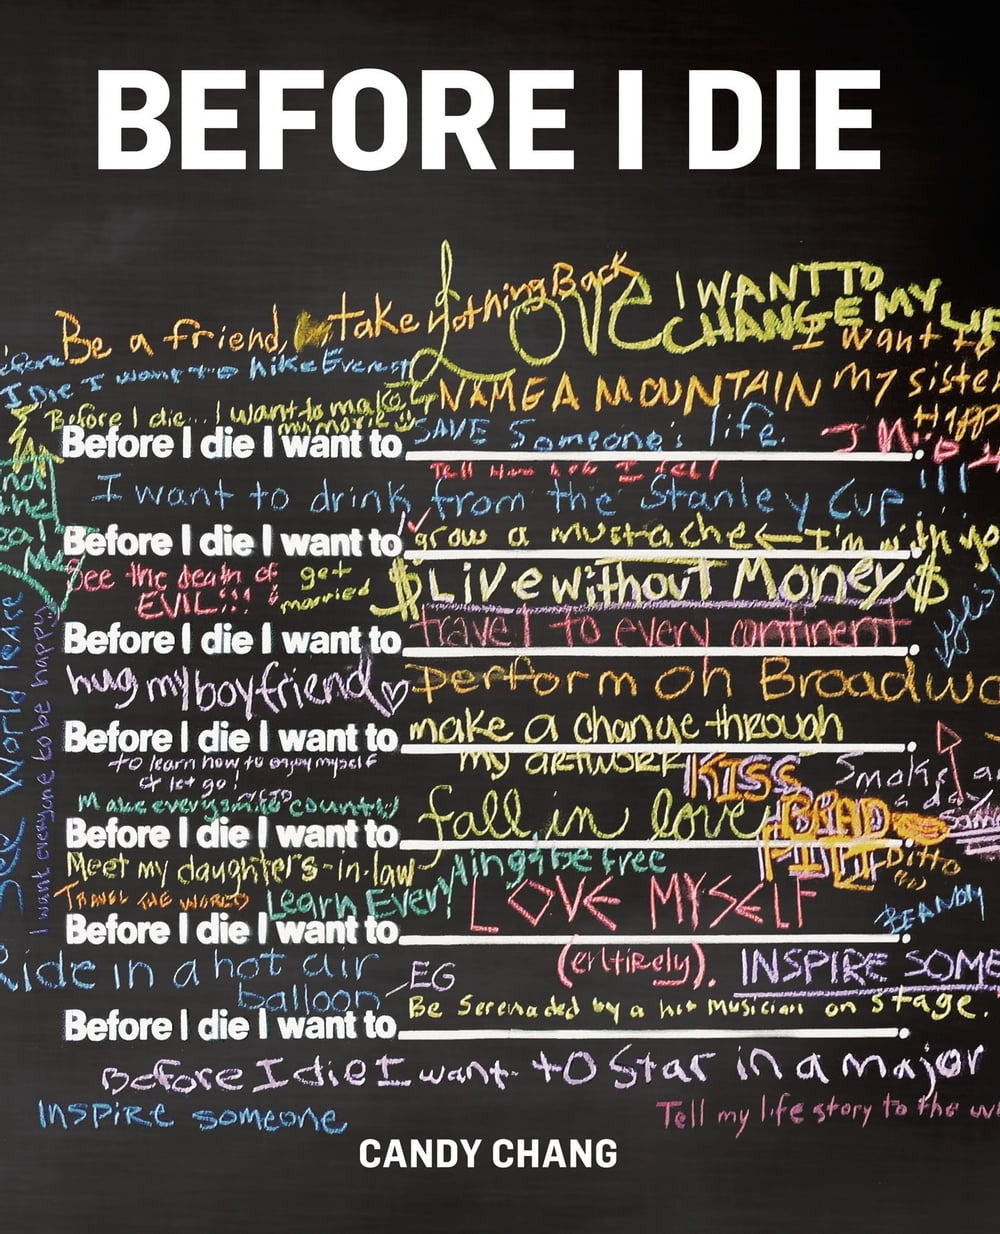 BEFORE I DIE
Be a friend, take Nothing Back
LOVE
I WANT TO
CHANGE MY LIF
I want to
Before
I Die I want to hike Everest
NAME A MOUNTAIN
my siste
Happ
Before I die... I want to make
my movie
Before I die I want to SAVE Someone's life.
Tell Him how I feel!
I want to drink from the Stanley Cup !!!
Before I die I want to grow a mustache ← I'm with yo
See the death of
EVIL!!!
get
married
$ Live without Money $
Before I die I want to travel to every continent
yes
hug my boyfriend ♡
perform on Broadwa
Before I die I want to make a change through
my ARTWORK
to learn how to enjoy myself
& let go!
KISS
BRAD
PITT
Smoke
a day
Make every smile count!
Before I die I want to fall in love
Ditto
Meet my daughter's-in-law
TRAVEL THE WORLD
Learn Everything & be free
LOVE MYSELF
Before I die I want to
(entirely).
BE ANDY
Ride in a hot air
balloon
EG
INSPIRE SOME
Be Serenaded by a hot Musician on stage.
Before I die I want to
Before I die I want to Star in a major
INSPIRE someone
Tell my life story to the
I want everyone to be happy
See World Peace
CANDY CHANG